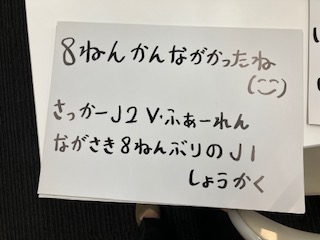 8ねんかんながかったね
(◡̈)
さっかーJ2 V・ふぁーれん
ながさき8ねんぶりのJ1
しょうかく